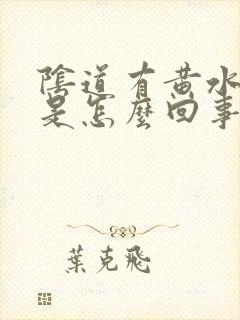 陰道有黄水
是怎麼回事
葉克飛